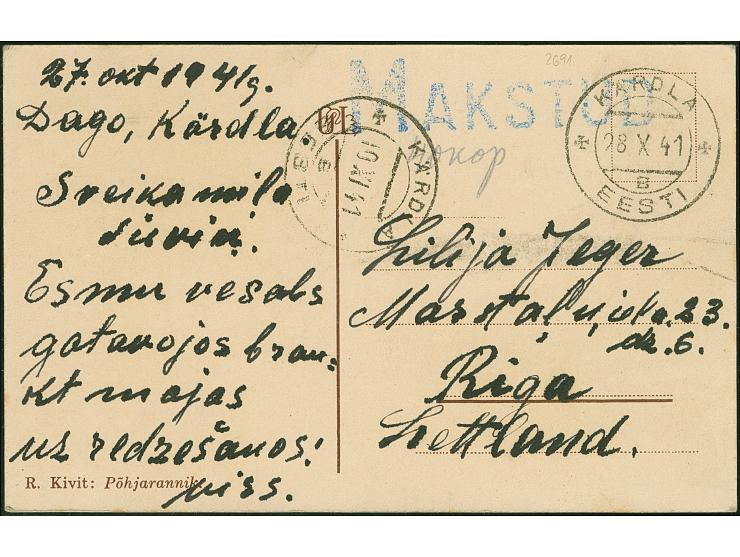 27. okt 1941g.
Dago, Kärdla
Sveika mīļa
sieviņ.
Esmu vesals
gatavojos brau-
kt mājas
uz redzešanos!
viss.
R. Kivit: Põhjarannik.
2691
MAKSTUD
KÄRDLA
28 X 41
B
EESTI
KÄRDLA
10 XI 41
B
EESTI
Lilija Jeger
Marstaļu iela 23.
dz. 6.
Riga
Lettland.